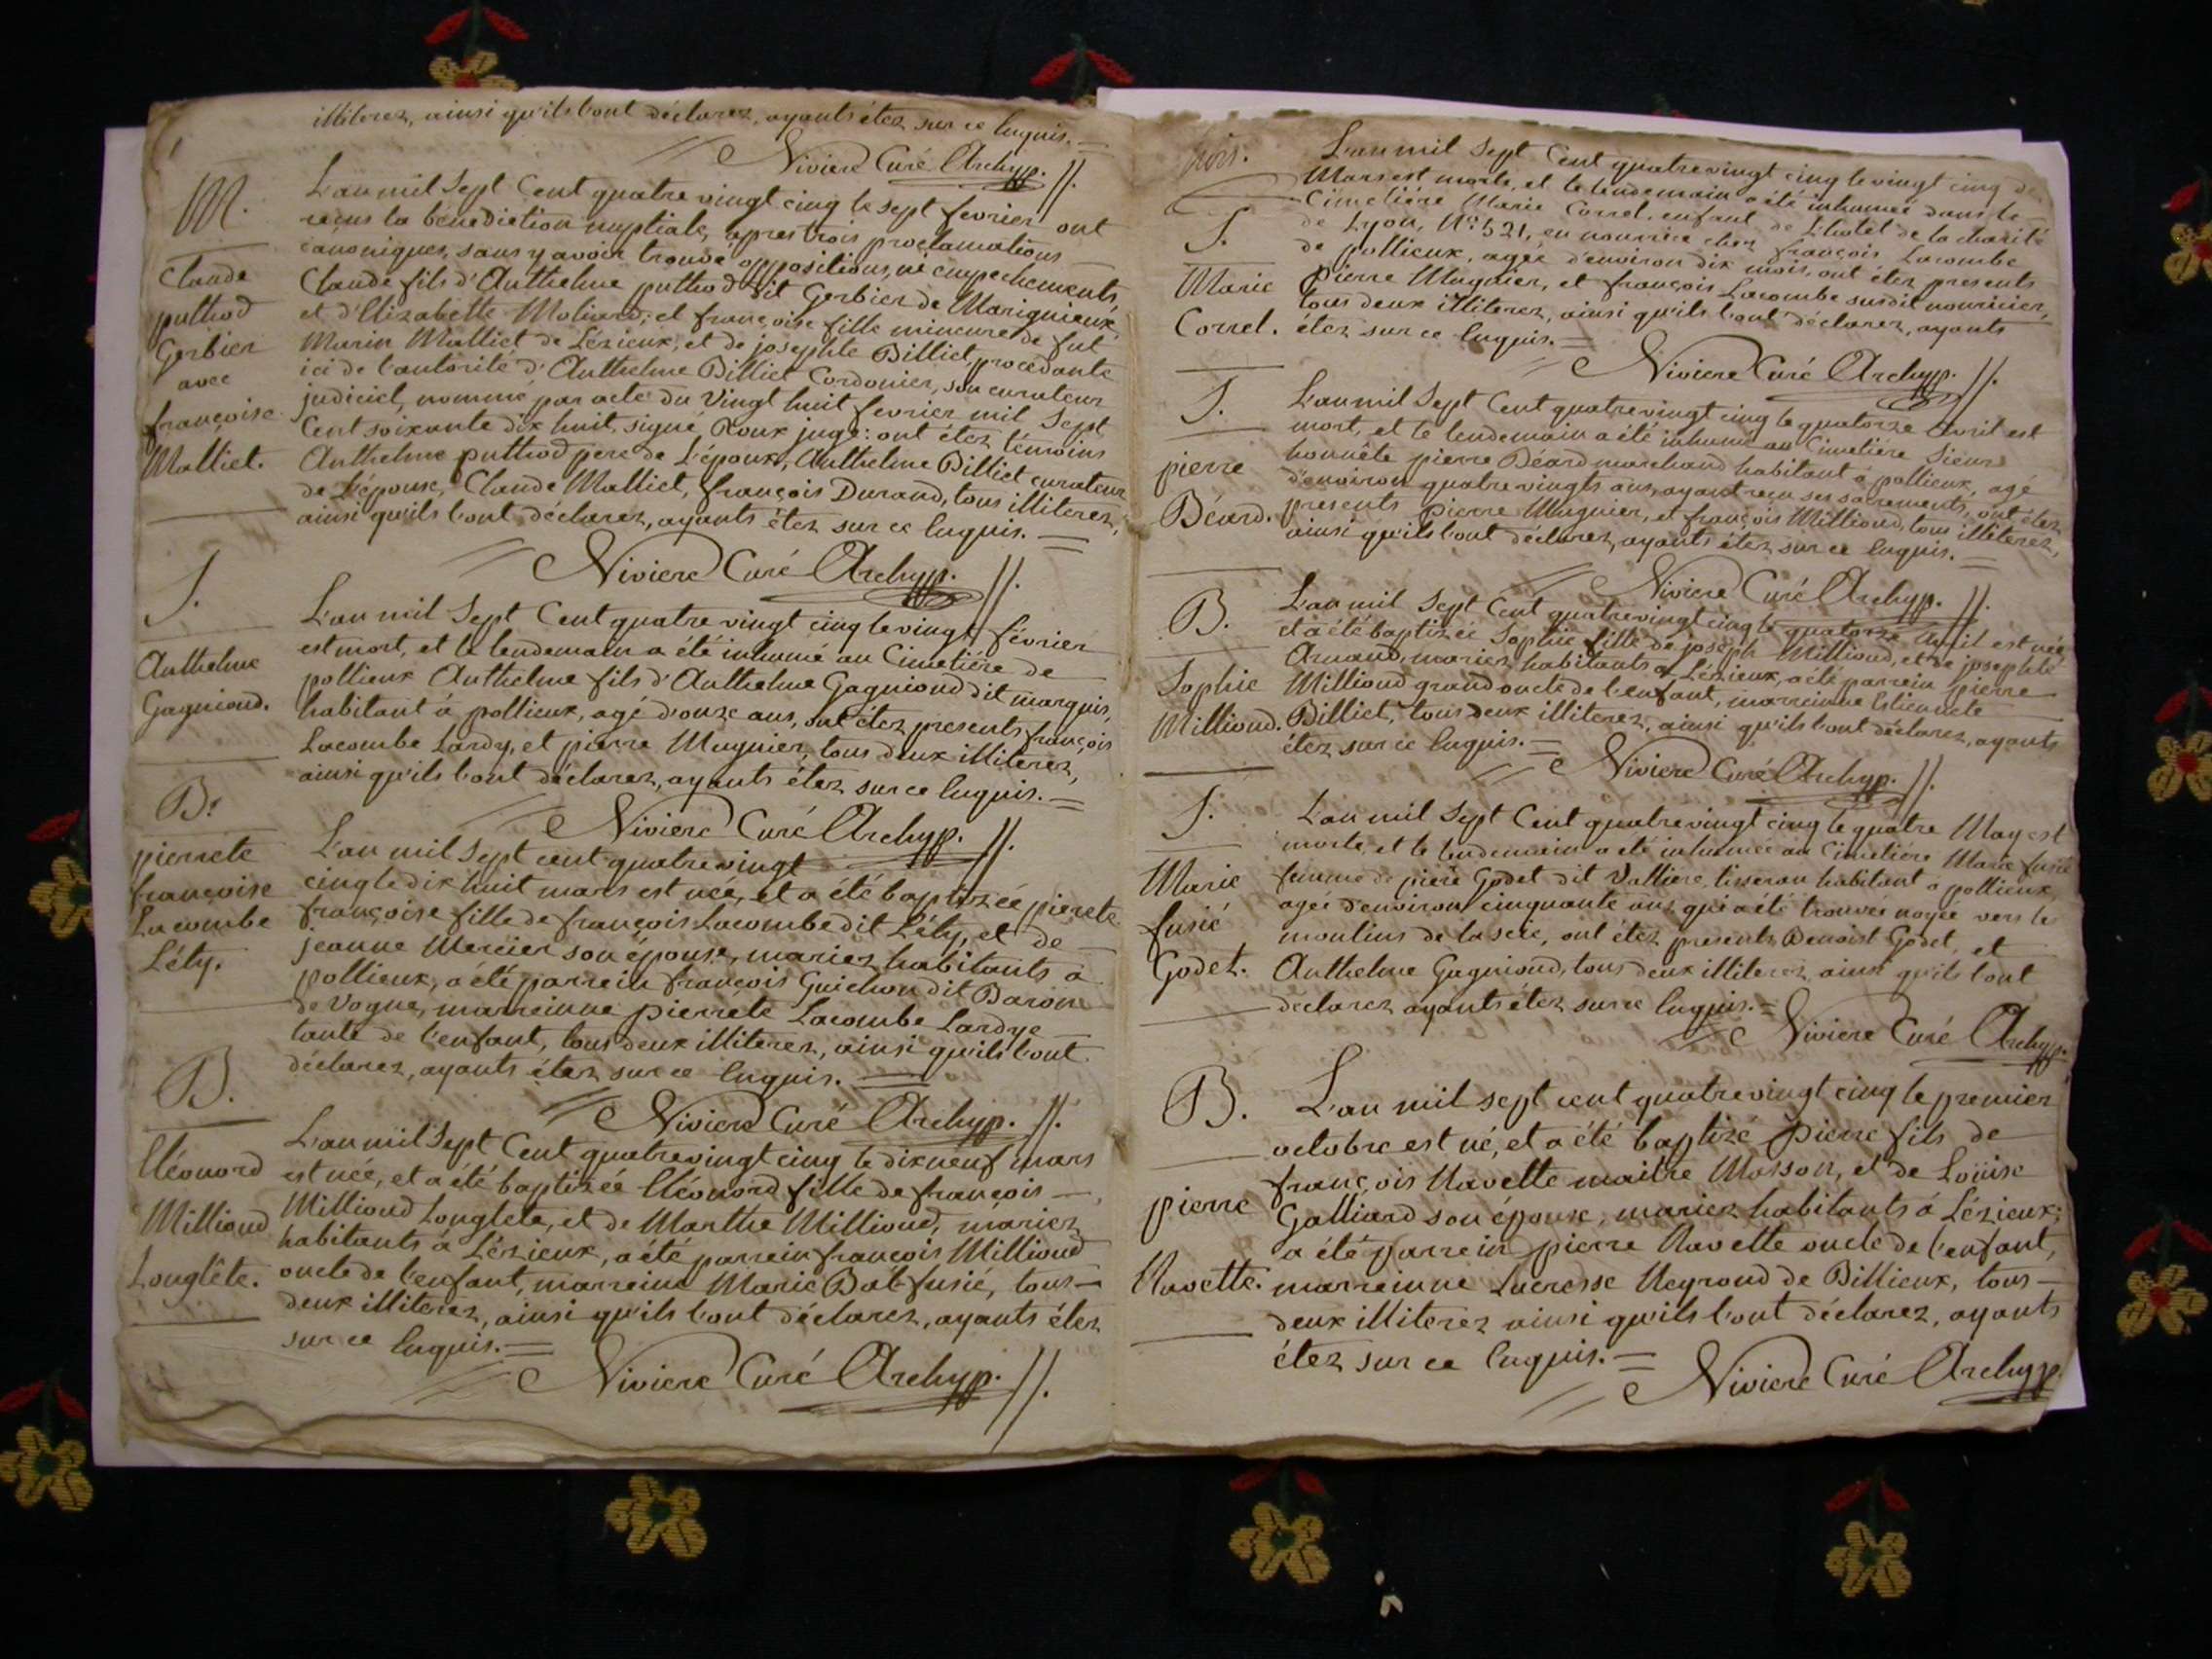 illiterez, ainsi qu'ils l'ont déclarez, ayants étez sur ce enquis.
Niviere Curé Archyp.
M.
Claude
puthod
Gerbier
avec
françoise
Malliet.
L'an mil Sept Cent quatre vingt cinq le sept fevrier ont
reçus la bénédiction nuptiale, apres trois proclamations
canoniques, sans y avoir trouvé oppositions, ni empechements,
Claude fils d'Anthelme puthod dit Gerbier de Marignieux
et d'Elizabette Moliard; et françoise fille mineure de fut
Marin Malliet de Lézieux, et de josephte Billiet, procedante
ici de l'autorité d'Anthelme Billiet Cordonier, son curateur
judiciel, nommé par acte du Vingt huit fevrier mil Sept
Cent soixante dix huit, signé Roux juge: ont étez témoins
Anthelme puthod pere de L'époux, Anthelme Billiet curateur
de L'épouse, Claude Malliet, françois Durand, tous illiterez,
ainsi qu'ils l'ont déclarez, ayants étez sur ce enquis.
Niviere Curé Archyp.
S.
Anthelme
Gagnioud.
L'an mil Sept Cent quatre vingt cinq le vingt février
est mort, et le lendemain a été inhumé au Cimetiére de
pollieux Anthelme fils d'Anthelme Gagnioud dit marquis,
habitant à pollieux, agé d'onze ans, ont étez presents françois
Lacombe Lardy, et pierre Mugnier, tous deux illiterez,
ainsi qu'ils l'ont déclarez, ayants étez sur ce enquis.
Niviere Curé Archyp.
B.
pierrete
françoise
Lacombe
Léty.
L'an mil Sept cent quatre vingt
cinq le dix huit mars est née, et a été baptizée pierete
françoise fille de françois Lacombe dit Léty, et de
jeanne Mercier son épouse, mariez habitants à
pollieux, a été parrein françois Guichon dit Baron
de Vogne, marreinne pierrete Lacombe Lardye
tante de l'enfant, tous deux illiterez, ainsi qu'ils l'ont
déclarez, ayants étez sur ce enquis.
Niviere Curé Archyp.
B.
Eléonord
Millioud
Longlête.
L'an mil Sept Cent quatre vingt cinq le dix neuf mars
est née, et a été baptizée Eléonord fille de françois
Millioud Longlete, et de Marthe Millioud, mariez
habitants à Lézieux, a été parrein françois Millioud
oncle de l'enfant, marreine Marie Bal-fusié, tous
deux illiterez, ainsi qu'ils l'ont déclarez, ayants étez
sur ce enquis.
Niviere Curé Archyp.
S.
Marie
Correl.
L'an mil Sept Cent quatre vingt cinq le vingt cinq de
Mars est morte, et le lendemain a été inhumée dans le
Cimetiére Marie Correl, enfant de L'hotêl de la charité
de Lyon, N.º 521, en nourrice chez françois Lacombe
de pollieux, agée d'environ dix mois, ont étez presents
Pierre Mugnier, et françois Lacombe susdit nourricier,
tous deux illiterez, ainsi qu'ils l'ont déclarez, ayants
étez sur ce enquis.
Niviere Curé Archyp.
S.
pierre
Béard.
L'an mil Sept Cent quatre vingt cinq le quatorze Avril est
mort, et le lendemain a été inhumé au Cimetiére Sieur
honnête pierre Béard marchand habitant à pollieux, agé
d'environ quatre vingts ans, ayant reçu ses sacrements, ont étez
presents Pierre Mugnier, et françois Millioud, tous illiterez,
ainsi qu'ils l'ont déclarez, ayants étez sur ce enquis.
Niviere Curé Archyp.
B.
Sophie
Millioud.
L'an mil Sept Cent quatre vingt cinq le quatorze Avril est née
et a été baptizée Sophie fille de joseph Millioud, et de josephte
Arnaud, mariez habitants à Lézieux, a été parrein pierre
Millioud grand oncle de l'enfant, marreinne Estiennete
Billiet, tous deux illiterez, ainsi qu'ils l'ont déclarez, ayants
étez sur ce enquis.
Niviere Curé Archyp.
S.
Marie
fusié
Godet.
L'an mil Sept Cent quatre vingt cinq le quatre May est
morte, et le lendemain a été inhumée au Cimetiére Marie fusié
femme de piere Godet dit Valliere, tisseran habitant à pollieux,
agée d'environ cinquante ans, qui a été trouvée noyée vers le
moulins de la sere, ont étez presents Benoist Godet, et
Anthelme Gagnioud, tous deux illiterez, ainsi qu'ils l'ont
déclarez ayants étez sur ce enquis.
Niviere Curé Archyp.
B.
pierre
Navette.
L'an mil sept cent quatre vingt cinq le premier
octobre est né, et a été baptizé Pierre fils de
françois Navette maitre Masson, et de Loüise
Galliard son épouse, mariez habitants à Lézieux,
a été parrein pierre Navette oncle de l'enfant,
marreinne Lucresse Neyroud de Billieux, tous
deux illiterez ainsi qu'ils l'ont déclarez, ayants
étez sur ce enquis.
Niviere Curé Archyp.